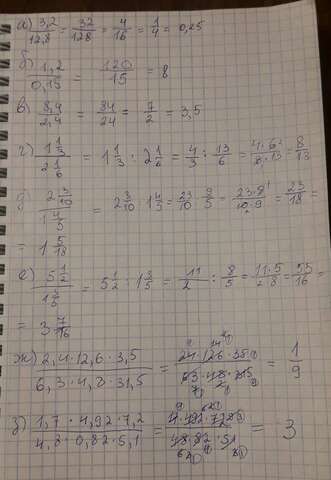 а) 3,2/12,8 = 32/128 = 4/16 = 1/4 = 0,25
б) 1,2/0,15 = 120/15 = 8
в) 8,4/2,4 = 84/24 = 7/2 = 3,5
г) 1 1/3 / 2 1/6 = 1 1/3 : 2 1/6 = 4/3 : 13/6 = 4·6/3·13 = 8/13
д) 2 3/10 / 1 4/5 = 2 3/10 : 1 4/5 = 23/10 : 9/5 = 23·5/10·9 = 23/18 =
= 1 5/18
е) 5 1/2 / 1 3/5 = 5 1/2 : 1 3/5 = 11/2 : 8/5 = 11·5/2·8 = 55/16 =
= 3 7/16
ж) 2,4·12,6·3,5 / 6,3·4,8·31,5 = 24·126·35 / 63·48·315 = 1/9
з) 1,7·4,92·7,2 / 4,8·0,82·5,1 = 17·492·72 / 48·82·51 = 3